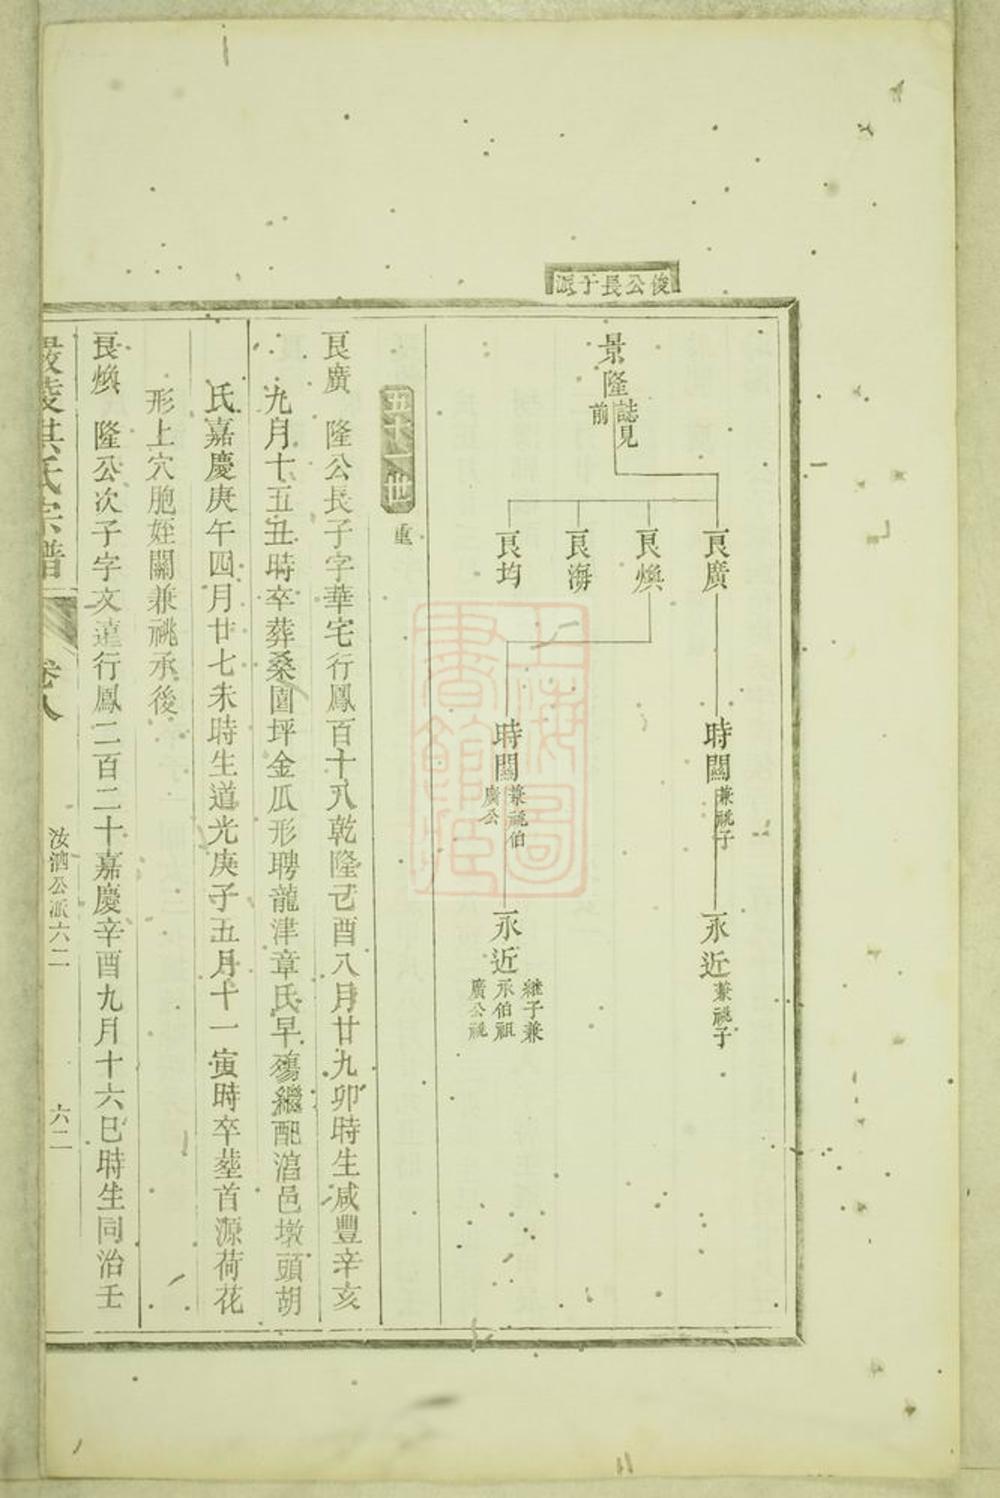 俊公長子派
景隆 誌見前
良廣
良煥
良海
良均
時關 兼祧子
時關 兼祧伯廣公
永近 兼祧子
永近 繼子兼承伯祖廣公祧
五十一世
重
良廣 隆公長子字華宅行鳳百十八乾隆己酉八月廿九卯時生咸豐辛亥
九月十五丑時卒葬桑園坪金瓜形聘龍津章氏早殤繼配淊邑墩頭胡
氏嘉慶庚午四月廿七未時生道光庚子五月十一寅時卒塟首源荷花
形上穴胞姪關兼祧承後
良煥 隆公次子字文達行鳳二百二十嘉慶辛酉九月十六巳時生同治壬
嚴陵洪氏宗譜 卷八 汝泗公派六二 六二